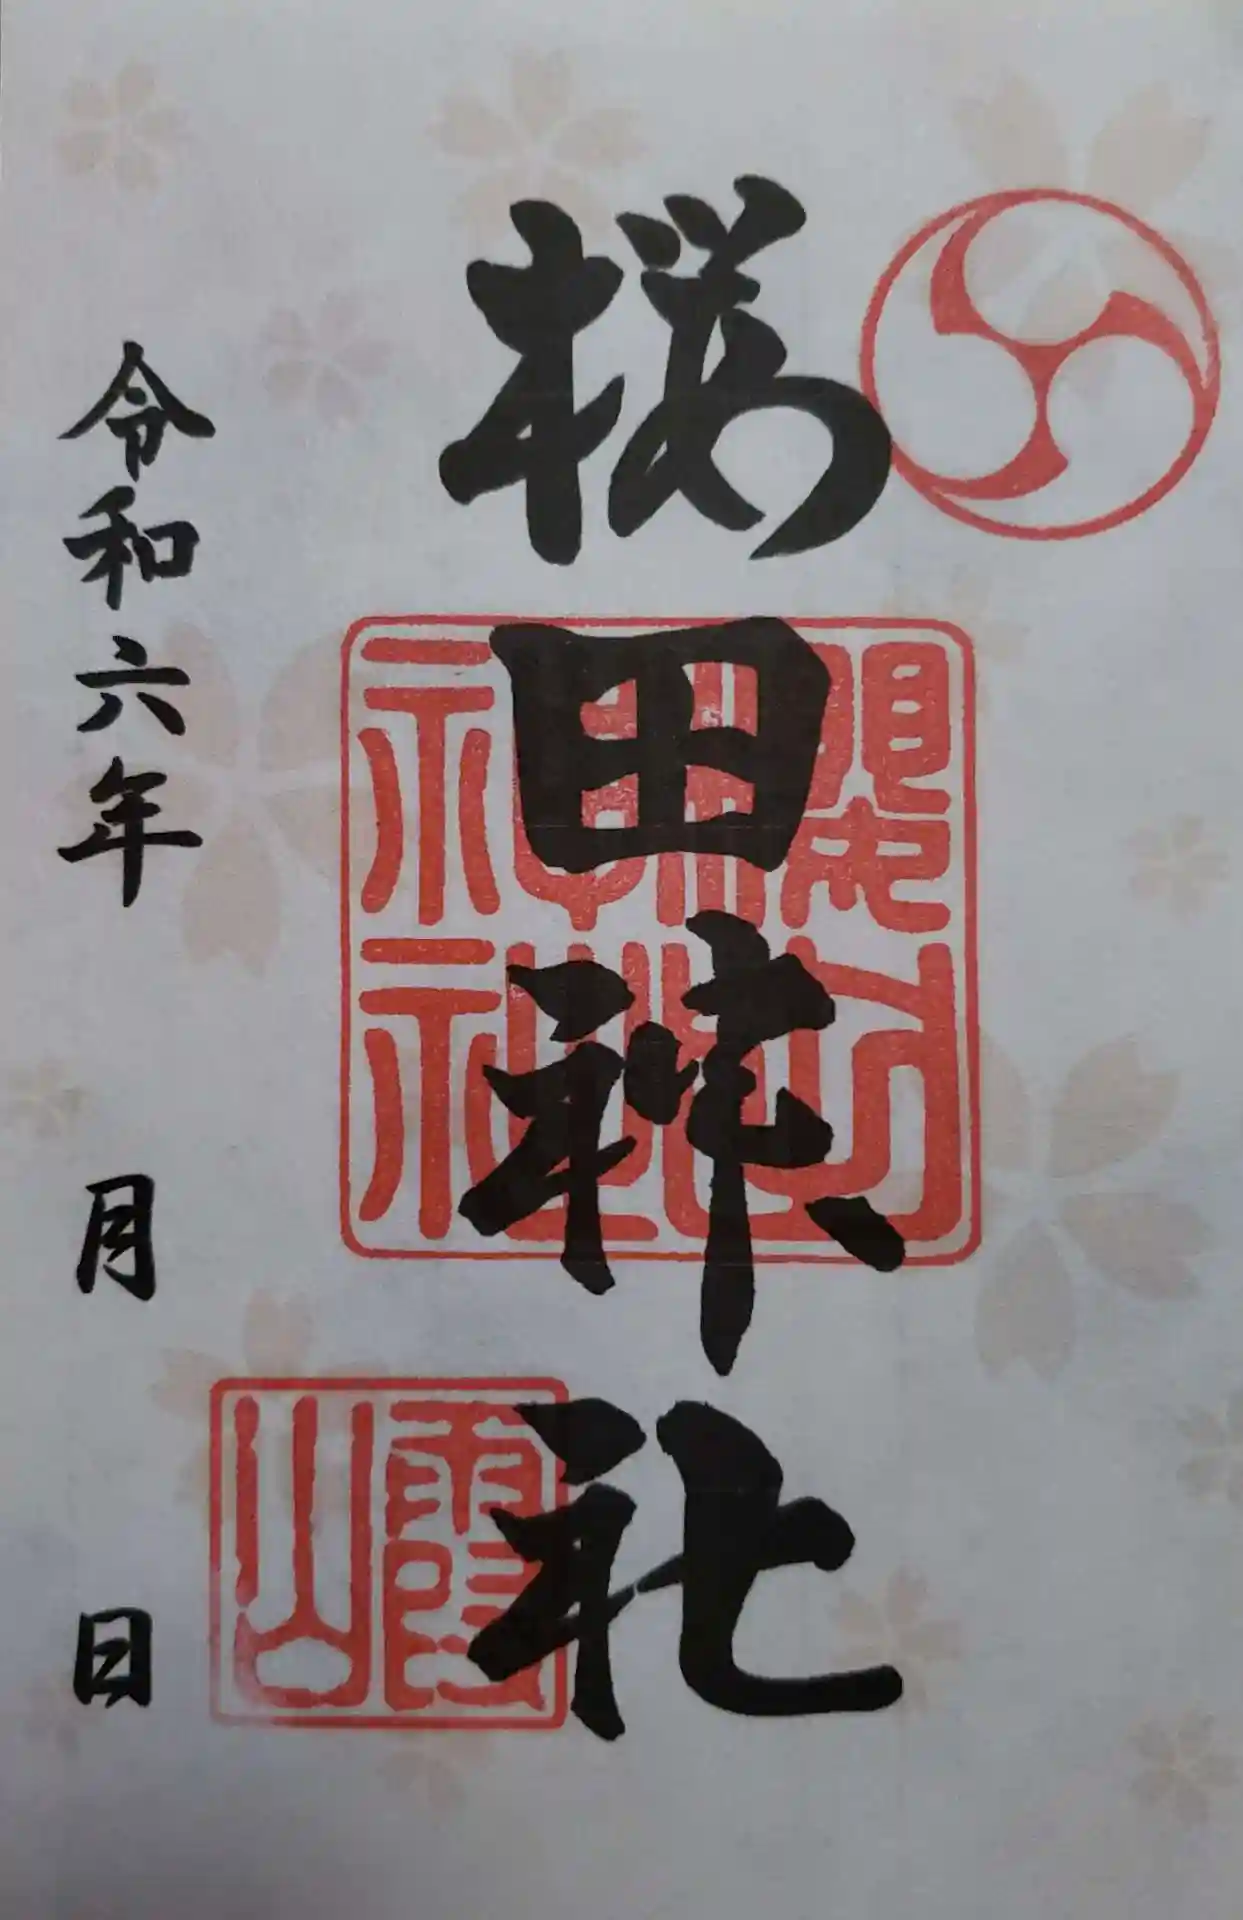 桜田神社
令和六年　月　日
霞山